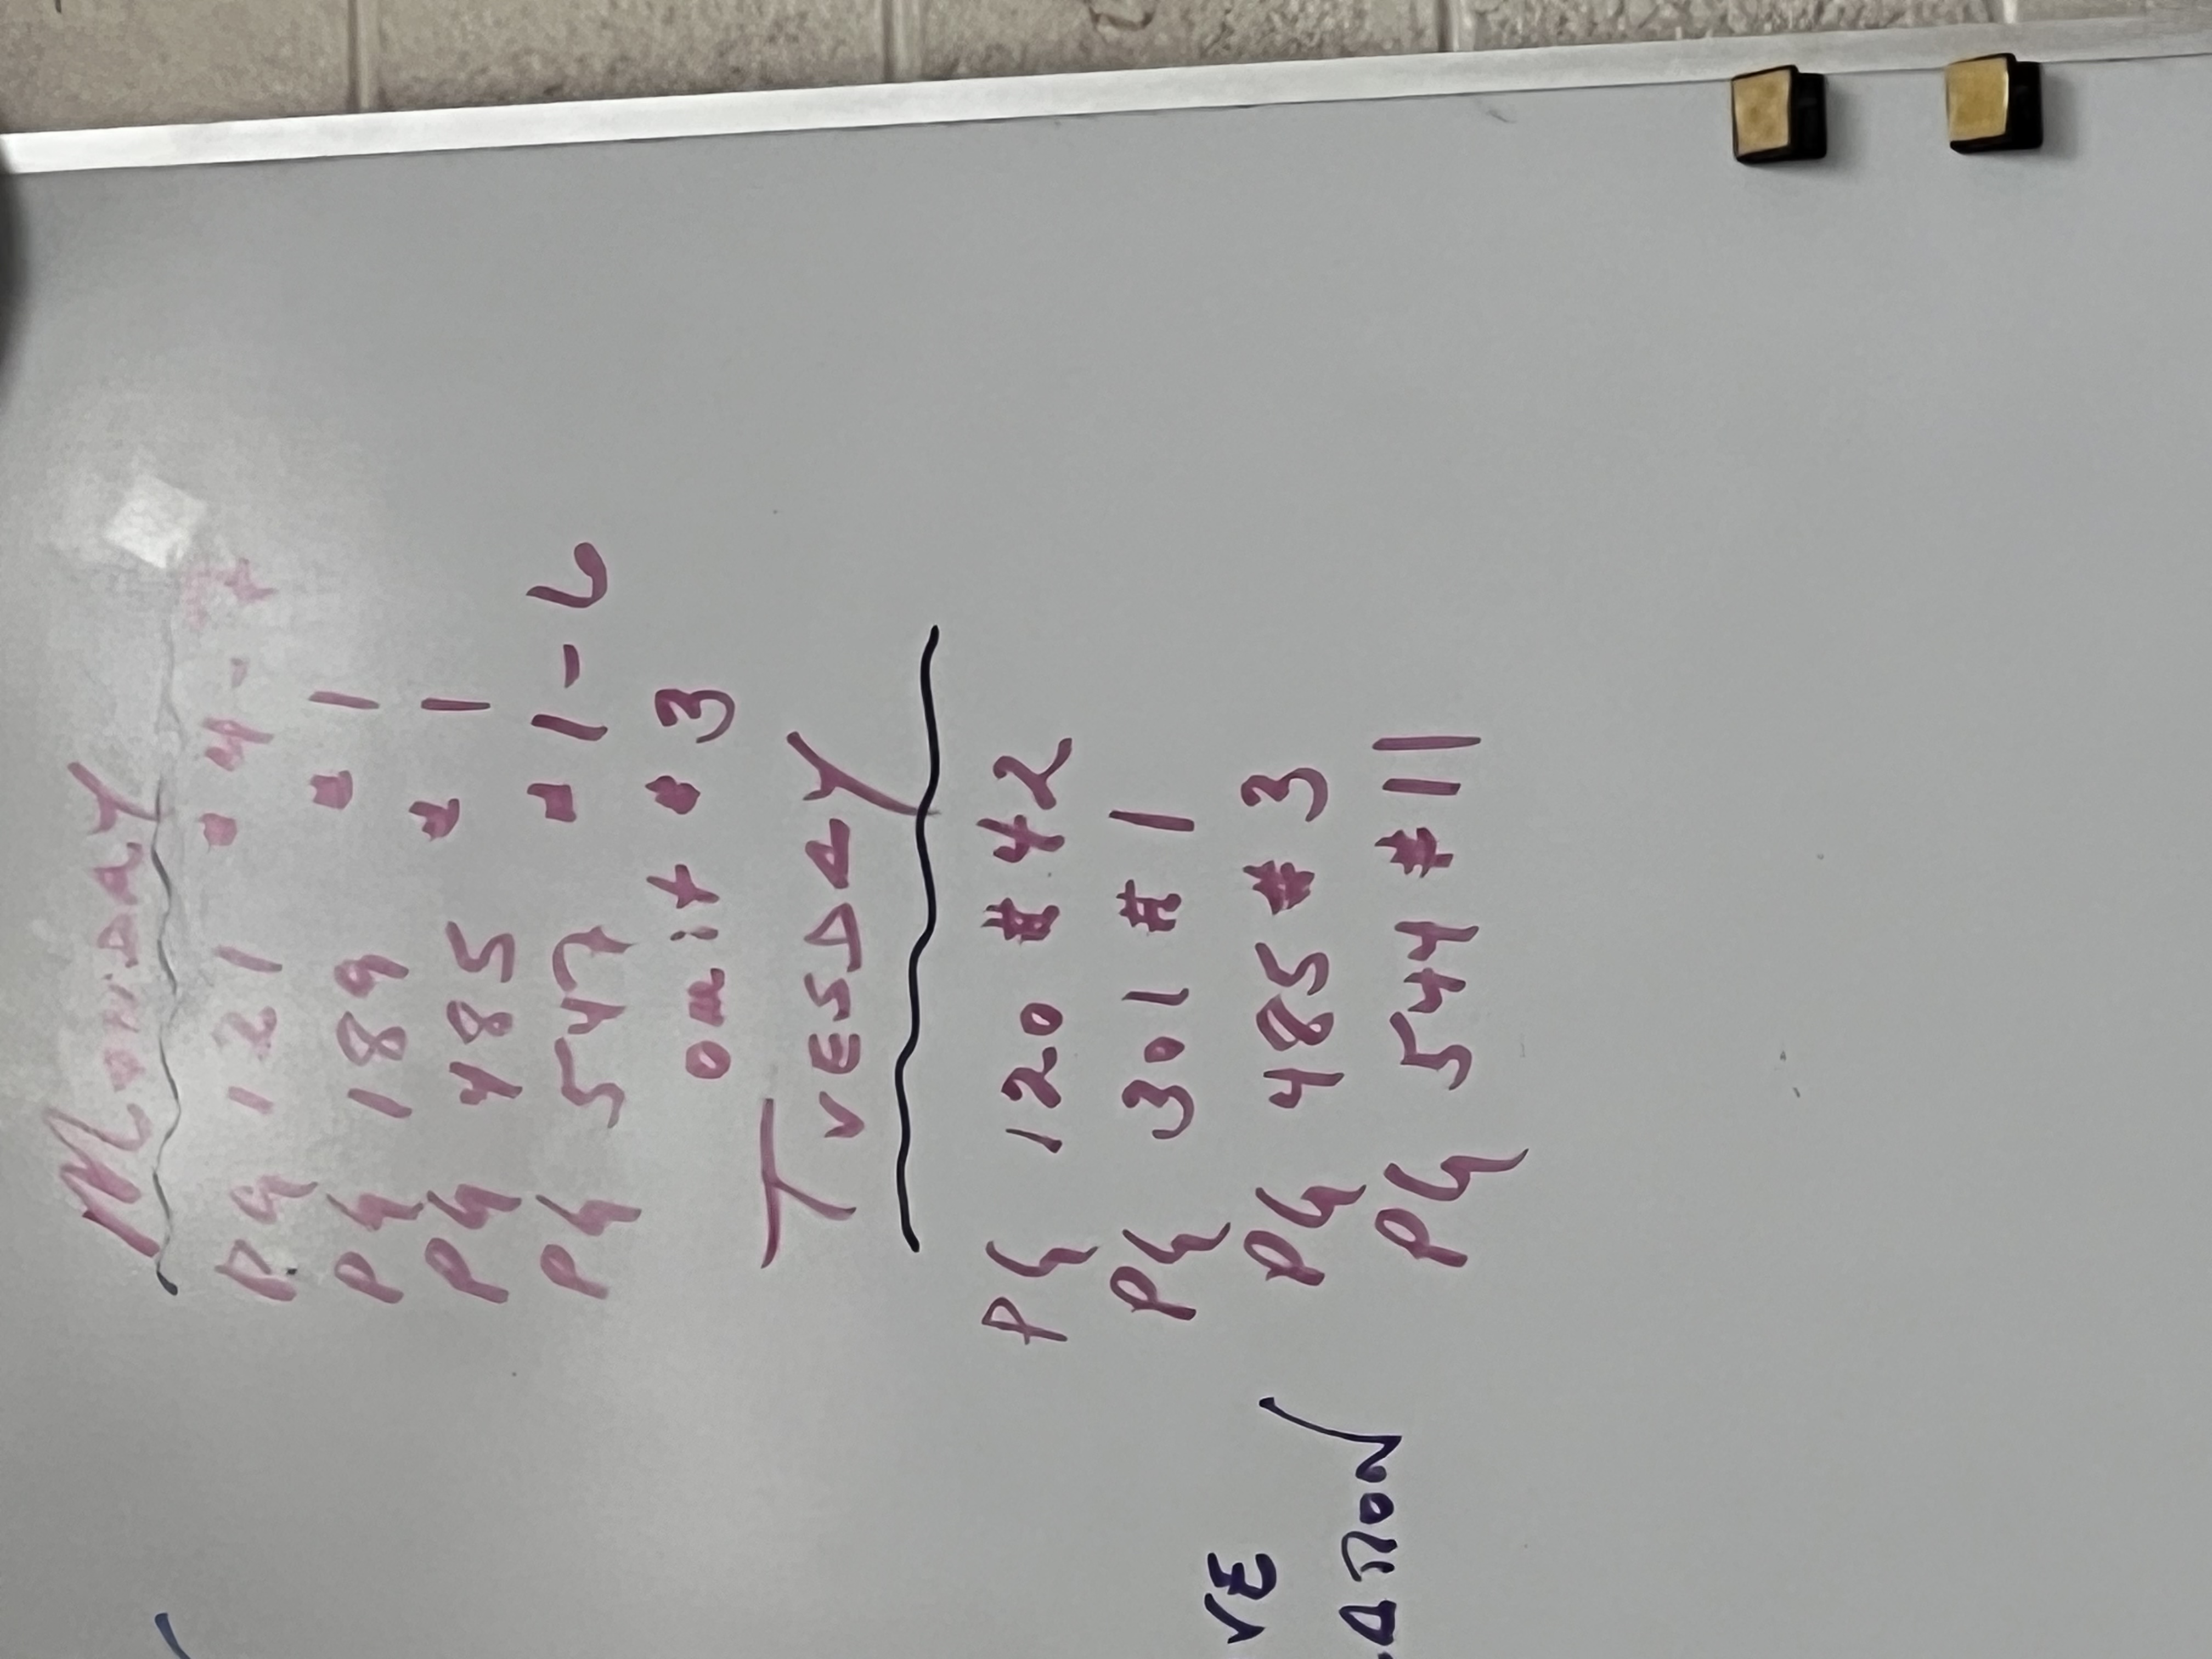 MONDAY
Pg 121 # 4-
Pg 189 # 1
Pg 485 # 1
Pg 547 # 1-6
omit # 3
TUESDAY
Pg 120 # 42
Pg 301 # 1
Pg 485 # 3
Pg 544 # 11
VE
ATION